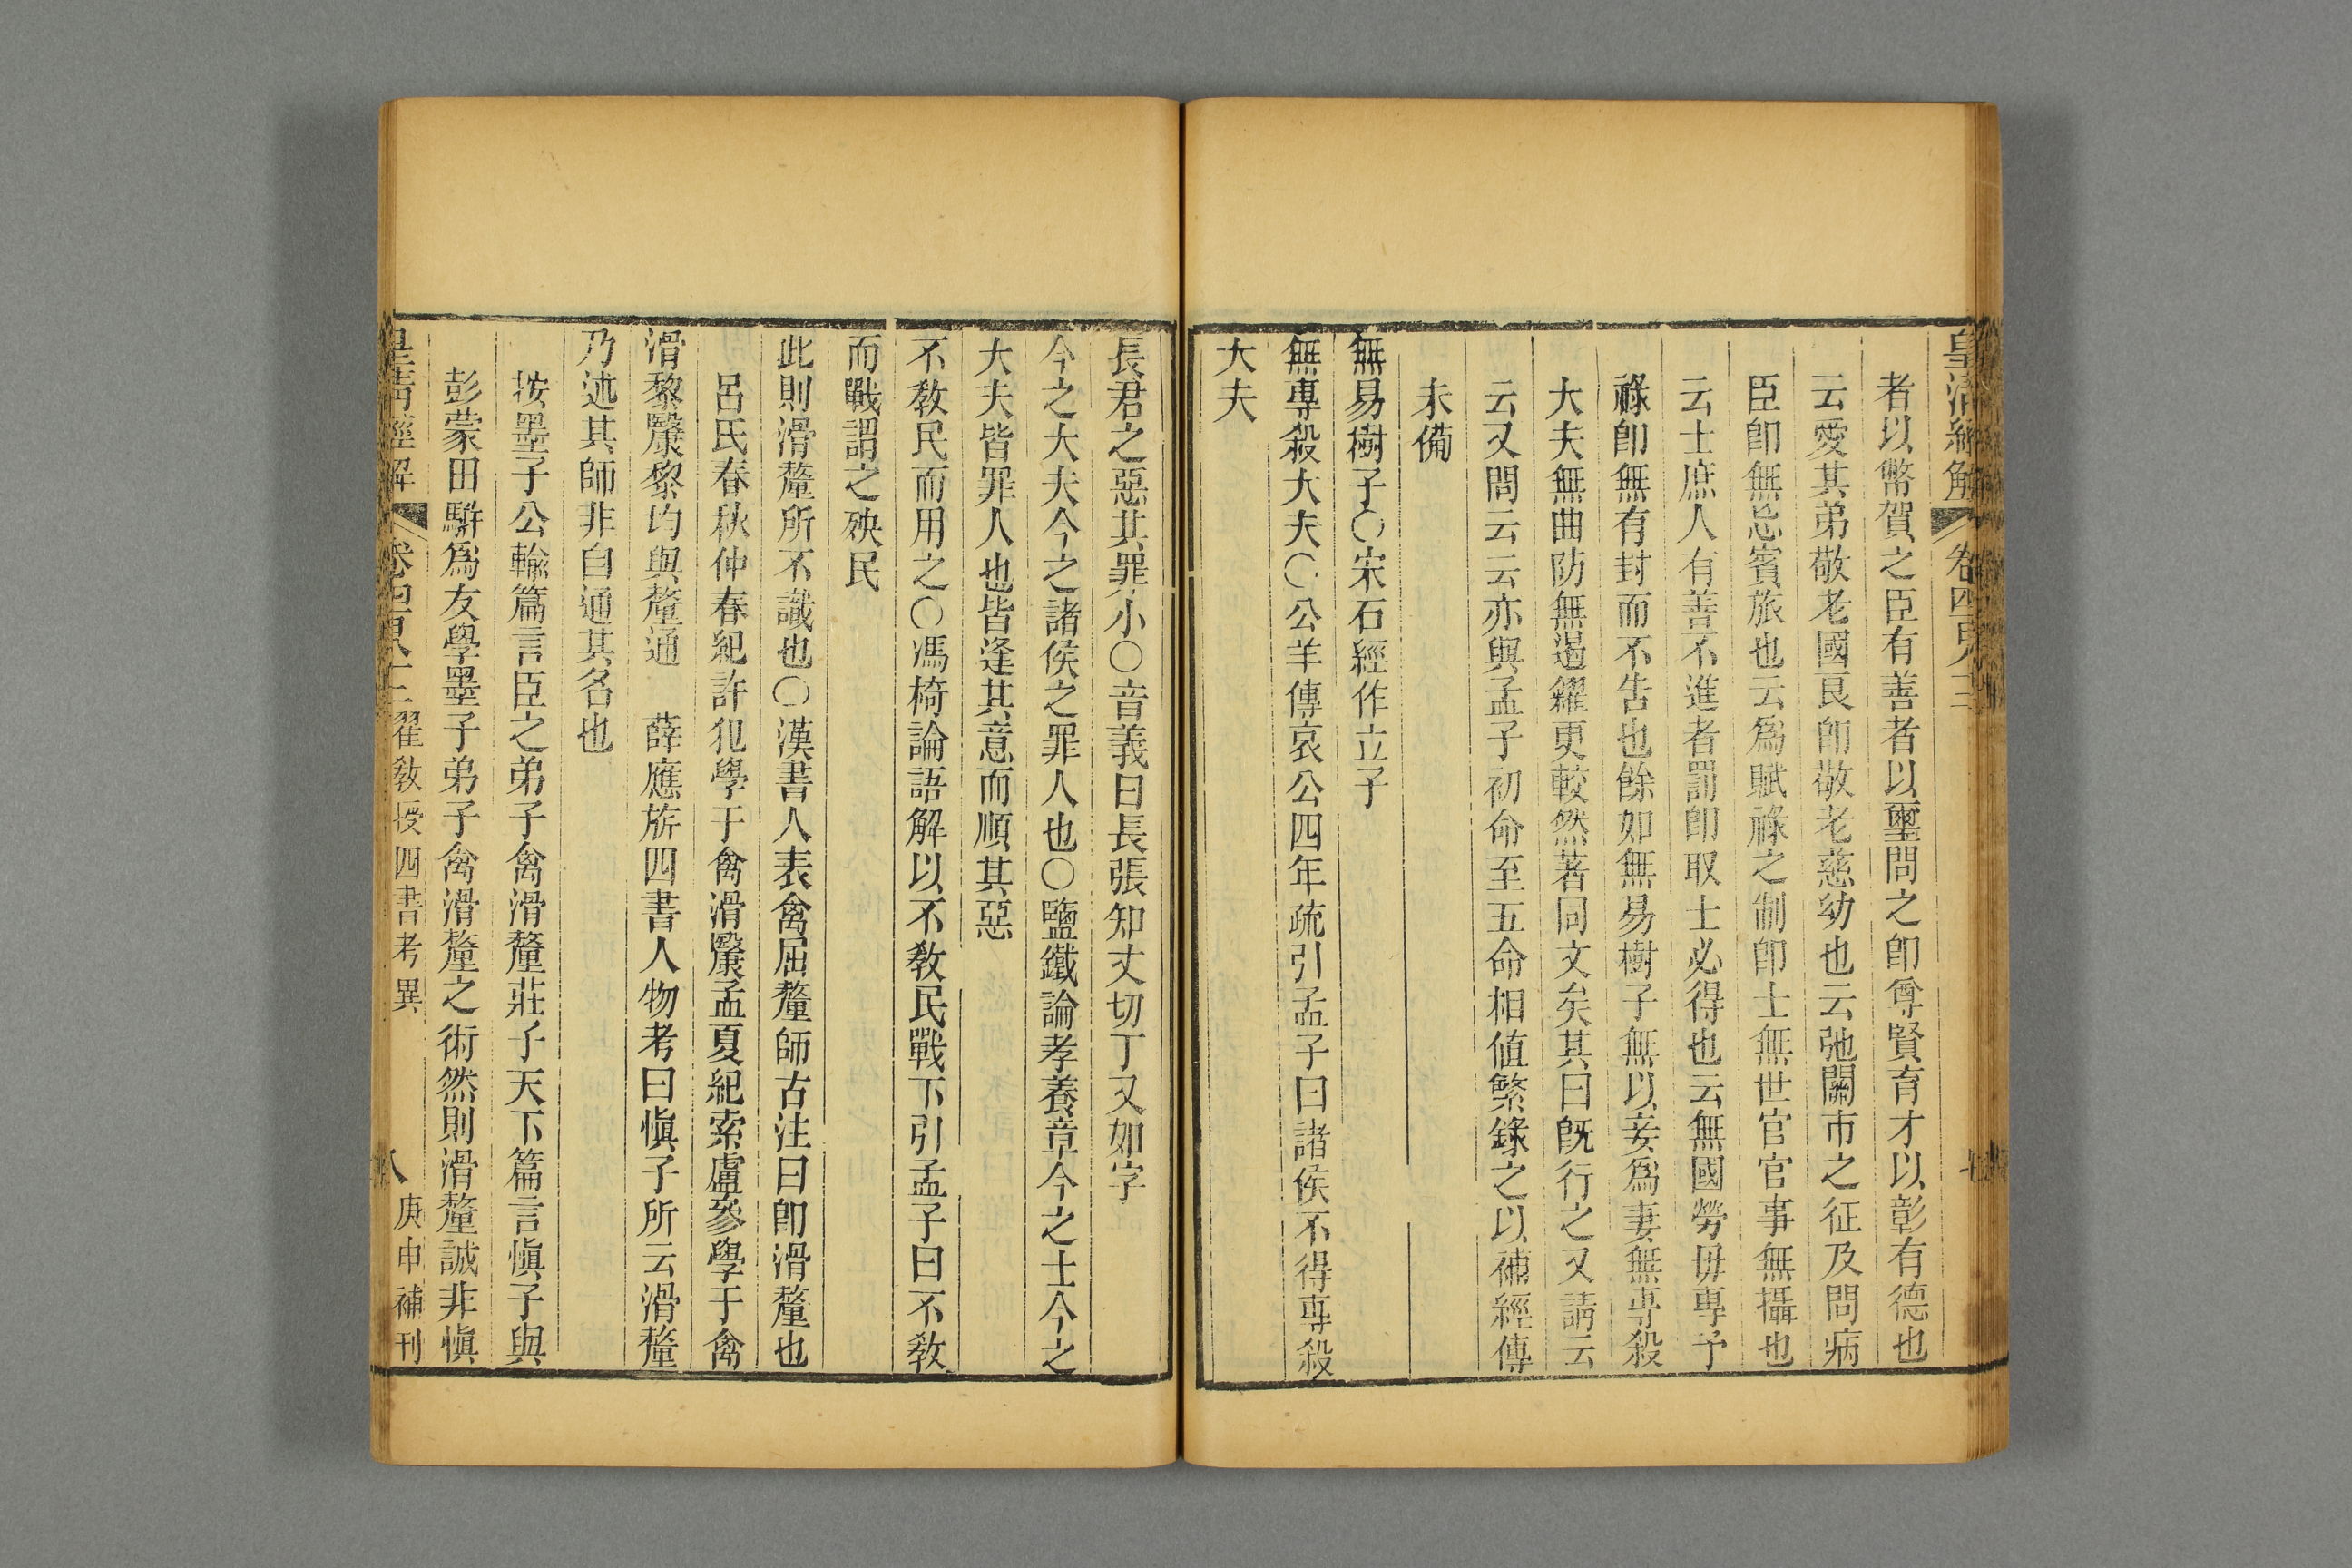 皇清經解 卷四百八十三 七
者以幣賀之臣有善者以璽問之卽尊賢育才以彰有德也
云愛其弟敬老國良卽敬老慈幼也云弛關市之征及問病
臣卽無忘賓旅也云爲賦祿之制卽士無世官官事無攝也
云士庶人有善不進者罰卽取士必得也云無國勞毋專予
祿卽無有封而不告也餘如無易樹子無以妾爲妻無專殺
大夫無曲防無遏糴更較然著同文矣其曰旣行之又請云
云又問云云亦與孟子初命至五命相値繁錄之以補經傳
未備
無易樹子〇宋石經作立子
無專殺大夫〇公羊傳哀公四年疏引孟子曰諸侯不得專殺
大夫
長君之惡其罪小〇音義曰長張知丈切丁又如字
今之大夫今之諸侯之罪人也〇鹽鐵論孝養章今之士今之
大夫皆罪人也皆逢其意而順其惡
不敎民而用之〇馮椅論語解以不敎民戰下引孟子曰不敎
而戰謂之殃民
此則滑釐所不識也〇漢書人表禽屈釐師古注曰卽滑釐也
呂氏春秋仲春紀許犯學于禽滑黳孟夏紀索盧參學于禽
滑黎黳黎均與釐通 薛應旂四書人物考曰愼子所云滑釐
乃述其師非自通其名也
按墨子公輸篇言臣之弟子禽滑釐莊子天下篇言愼子與
彭蒙田駢爲友學墨子弟子禽滑釐之術然則滑釐誠非愼
皇淸經解 卷四百八十三 翟敎授四書考異 八 庚申補刊